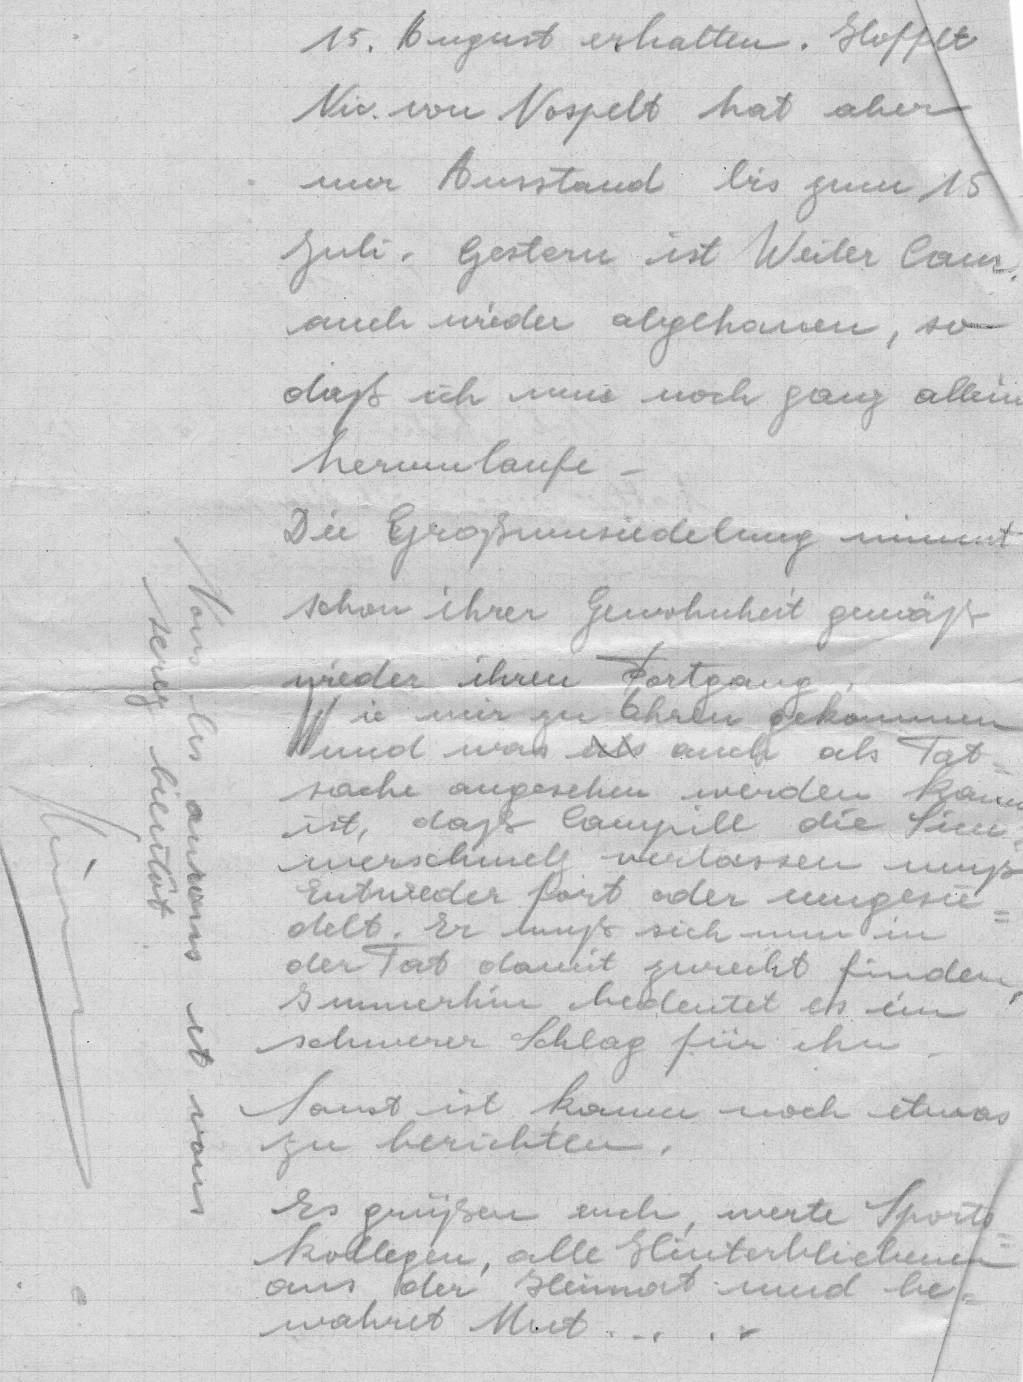 15. August erhalten. Hofflt
Nic. von Nospelt hat aber
nur Ausstand bis zum 15
Juli. Gestern ist Weiler Cam.
auch wieder abgehauen, so
daß ich nun noch ganz allein
herumlaufe –
Die Großumsiedelung nimmt
schon ihrer Gewohnheit gemäß
wieder ihren Fortgang.
Wie mir zu Ohren gekommen
und was auch als Tat=
sache angesehen werden kann
ist, daß Campill die Sim=
merschmelz verlassen muß
Entweder fort oder umgesie=
delt. Er muß sich nun in
der Tat damit zurecht finden,
Immerhin bedeutet es ein
schwerer Schlag für ihn.
Sonst ist kaum noch etwas
zu berichten.
Es grüßen euch, werte Sports=
kollegen, alle Hinterbliebenen
aus der Heimat und be=
wahret Mut. . . . .
Nous les aurons et vous
serez bientôt